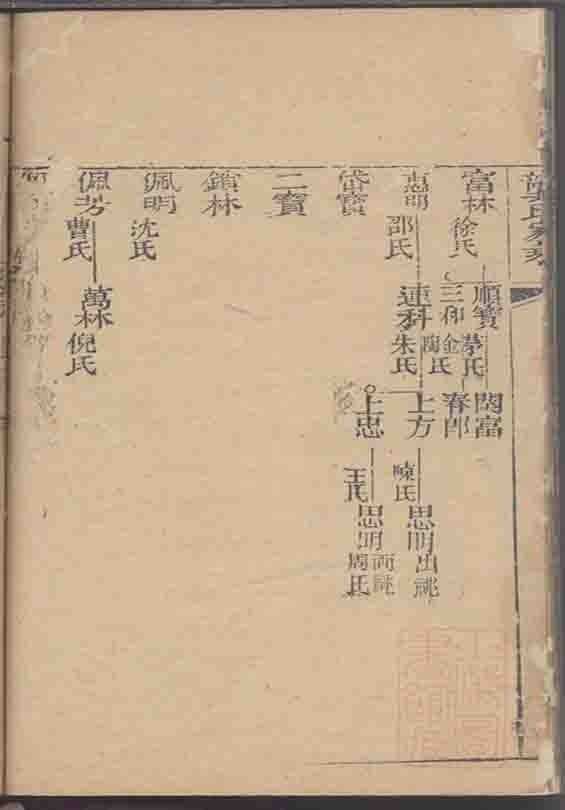 富林 徐氏
順寶 㔟氏
閏富
三和 金氏 陶氏
春郎
惠明 邵氏
連科 朱氏
上方 陳氏
思明 出祧
上忠 王氏
思明 兩祧 周氏
岱寶
二寶
鎖林
佩明 沈氏
佩芳 曹氏
萬林 倪氏